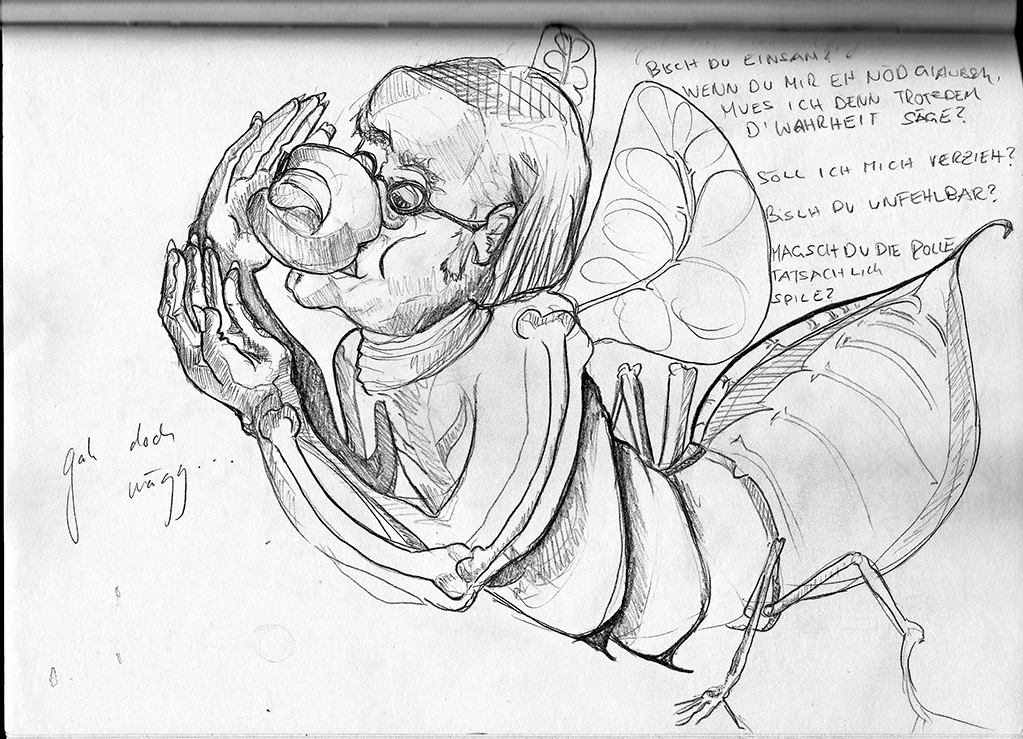 BISCH DU EINSAM?
WENN DU MIR EH NÖD GLAUBSCH,
MUES ICH DENN TROTZDEM
D'WAHRHEIT SÄGE?
SÖLL ICH MICH VERZIEH?
BISCH DU UNFEHLBAR?
MAGSCH DU DIE ROLLE
TATSÄCHLICH
SPILE?
gah doch
wägg....